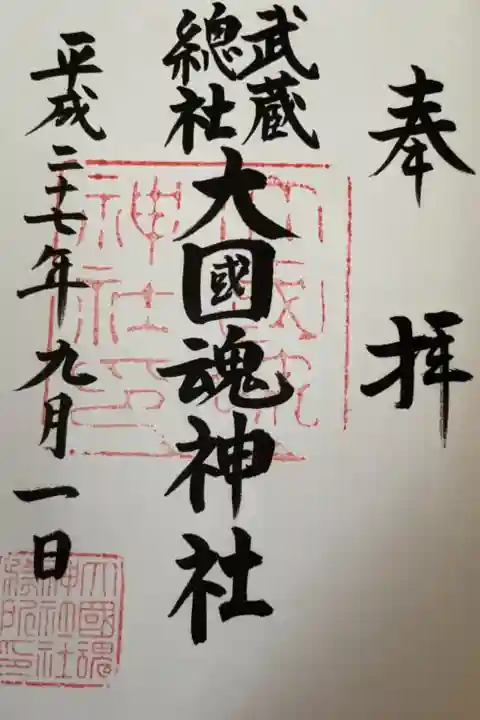 奉拝
武蔵
總社
大國魂神社
平成二十七年九月一日
大國魂
神社印
大國魂
神社社
務所印